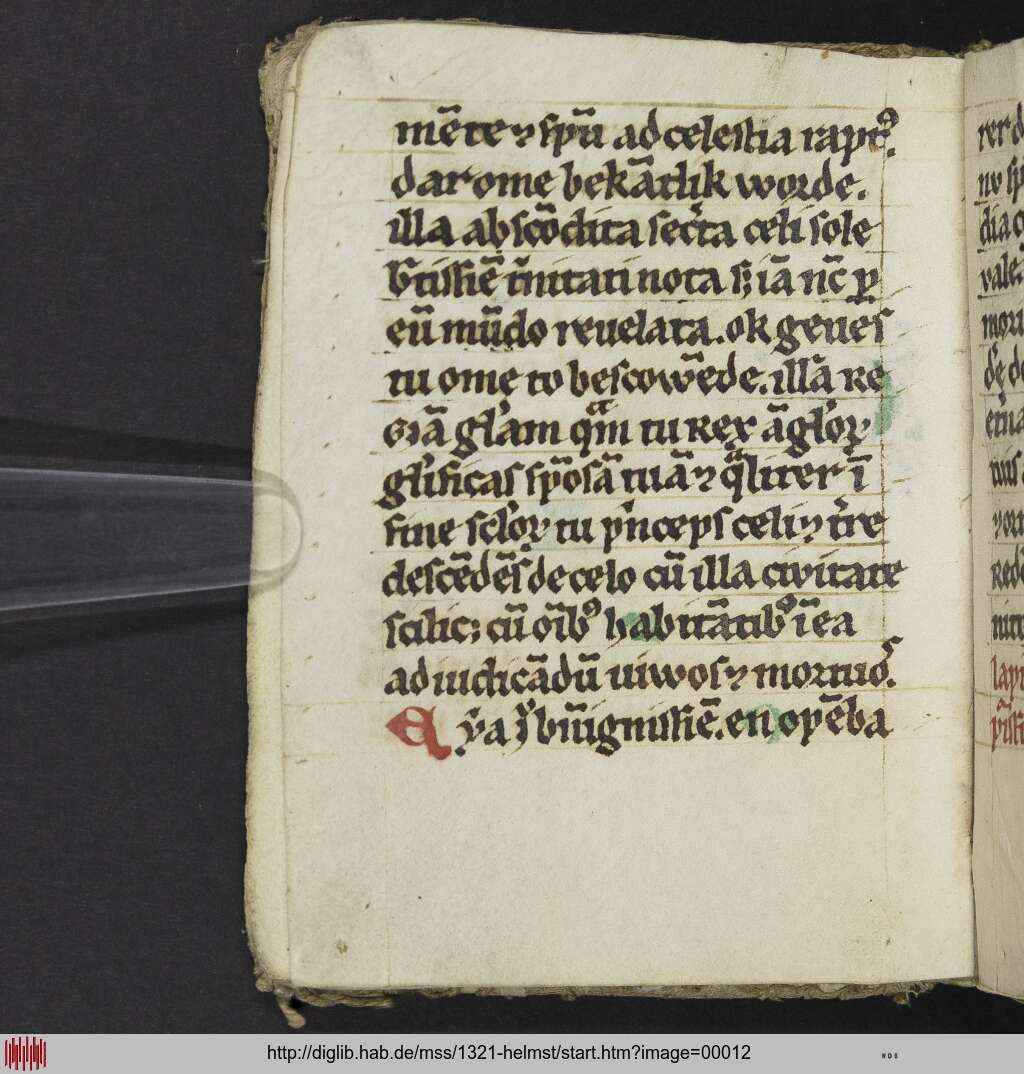 mēte ⁊ spū ad celestia rapt᷒.
dar ome bekātlik worde.
illa abscōdita sec̄ta celi sole
b̄tissiē t̄nitati nota sꝫ iā nc̄ ꝑ
eū mūdo reuelata. ok geues
tu ome to bescowēde. illā re
giā gl̄am qm̄ tu rex āgl̄oꝝ
gl̄ificas spōsā tuā ⁊ q̄liter ī
fine sc̄loꝝ tu p̄nceps celi ⁊ t̄re
descēdēs de celo cū illa civitate
scilicꝫ cū oīb᷒ habitātib᷒ ī ea
ad iudicādū uiwos ⁊ mortuos.
bn̄ignissiē. en opēba
rer d
nv sp
dia
vale
mori
etna
nis
rede
http://diglib.hab.de/mss/1321-helmst/start.htm?image=00012